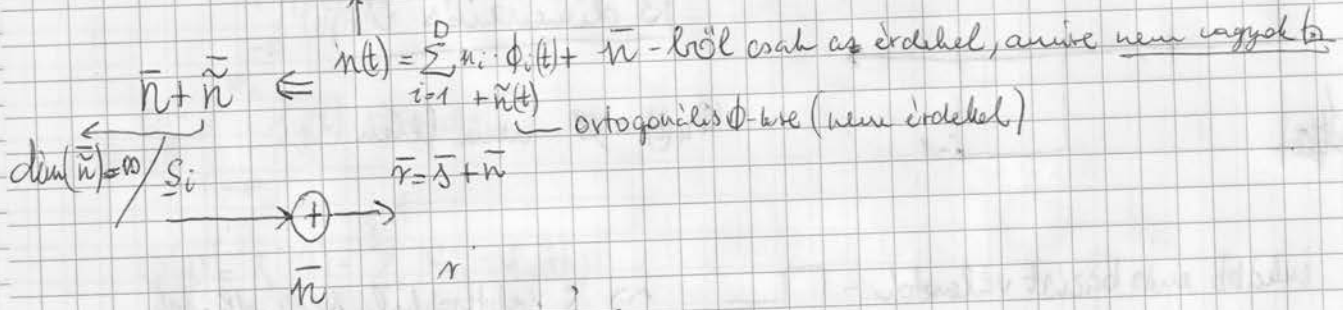 n(t) = ∑_{i=1}^{D} n_i · ϕ_i(t) + n̄ -ből csak az érdekel, amire nem vagyok
n̄ + ñ̄ ⇐ + ñ(t)
ortogonális ϕ-kre (nem érdekel)
dim(ñ̄)=∞ / s_i r̄ = s̄ + n̄
+
n̄ r